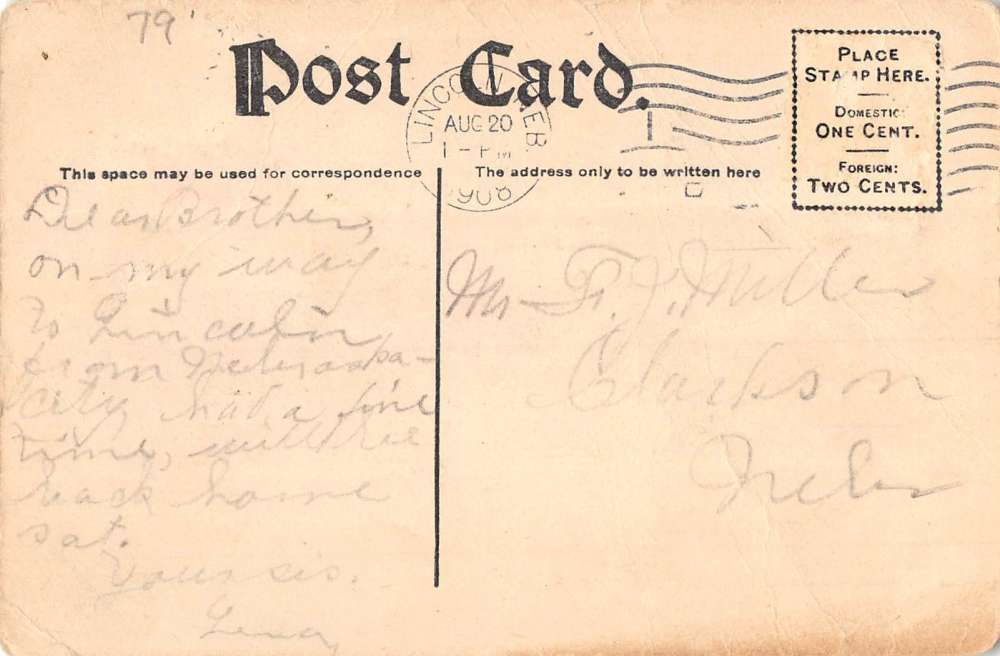 79
Post Card.
LINCOLN, NEB
AUG 20
1-PM
1908
PLACE
STAMP HERE.
DOMESTIC:
ONE CENT.
FOREIGN:
TWO CENTS.
This space may be used for correspondence
The address only to be written here
Dear Brother,
on my way
to Lincoln
from Nebraska-
City had a fine
time, will be
back home
sat.
Your sis.
Lena
Mr F. J. Miller
Clarkson
Nebr